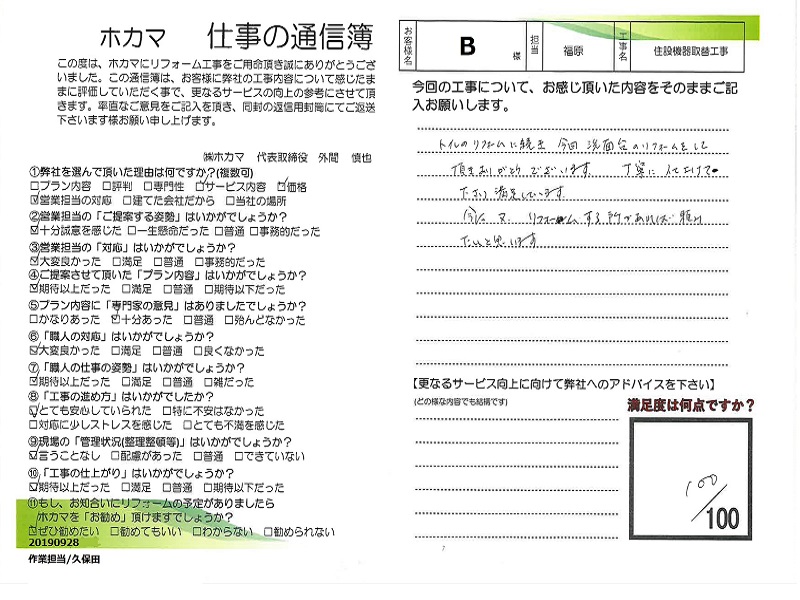 ホカマ 仕事の通信簿
この度は、ホカマにリフォーム工事をご用命頂き誠にありがとうござ
いました。この通信簿は、お客様に弊社の工事内容について感じたま
まに評価していただく事で、更なるサービスの向上の参考にさせて頂
きます。率直なご意見をご記入を頂き、同封の返信用封筒にてご返送
下さいます様お願い申し上げます。
㈱ホカマ 代表取締役 外間 慎也
①弊社を選んで頂いた理由は何ですか?(複数可)
□プラン内容 □評判 □専門性 □サービス内容 ☑価格
☑営業担当の対応 □建てた会社だから □当社の場所
②営業担当の「ご提案する姿勢」はいかがでしょうか?
☑十分誠意を感じた □一生懸命だった □普通 □事務的だった
③営業担当の「対応」はいかがでしょうか?
☑大変良かった □満足 □普通 □事務的だった
④ご提案させて頂いた「プラン内容」はいかがでしょうか?
☑期待以上だった □満足 □普通 □期待以下だった
⑤プラン内容に「専門家の意見」はありましたでしょうか?
□かなりあった ☑十分あった □普通 □殆んどなかった
⑥「職人の対応」はいかがでしょうか?
☑大変良かった □満足 □普通 □良くなかった
⑦「職人の仕事の姿勢」はいかがでしょうか?
☑期待以上だった □満足 □普通 □雑だった
⑧「工事の進め方」はいかがでしたか?
☑とても安心していられた □特に不安はなかった
□対応に少しストレスを感じた □とても不満を感じた
⑨現場の「管理状況(整理整頓等)」はいかがでしょうか?
☑言うことなし □配慮があった □普通 □できていない
⑩「工事の仕上がり」はいかがでしょうか?
☑期待以上だった □満足 □普通 □期待以下だった
⑪もし、お知合いにリフォームの予定がありましたら
ホカマを「お勧め」頂けますでしょうか?
☑ぜひ勧めたい □勧めてもいい □わからない □勧められない
20190928
作業担当/久保田
お客様名 B 様 担当 福原 工事名 住設機器取替工事
今回の工事について、お感じ頂いた内容をそのままご記
入お願いします。
トイレのリフォームに続き 今回 洗面台のリフォームをして
頂きありがとうございます 丁寧に
下さり 満足しています
リフォームする所があれば 頼み
たいと思います
【更なるサービス向上に向けて弊社へのアドバイスを下さい】
(どの様な内容でも結構です)
満足度は何点ですか?
100/100